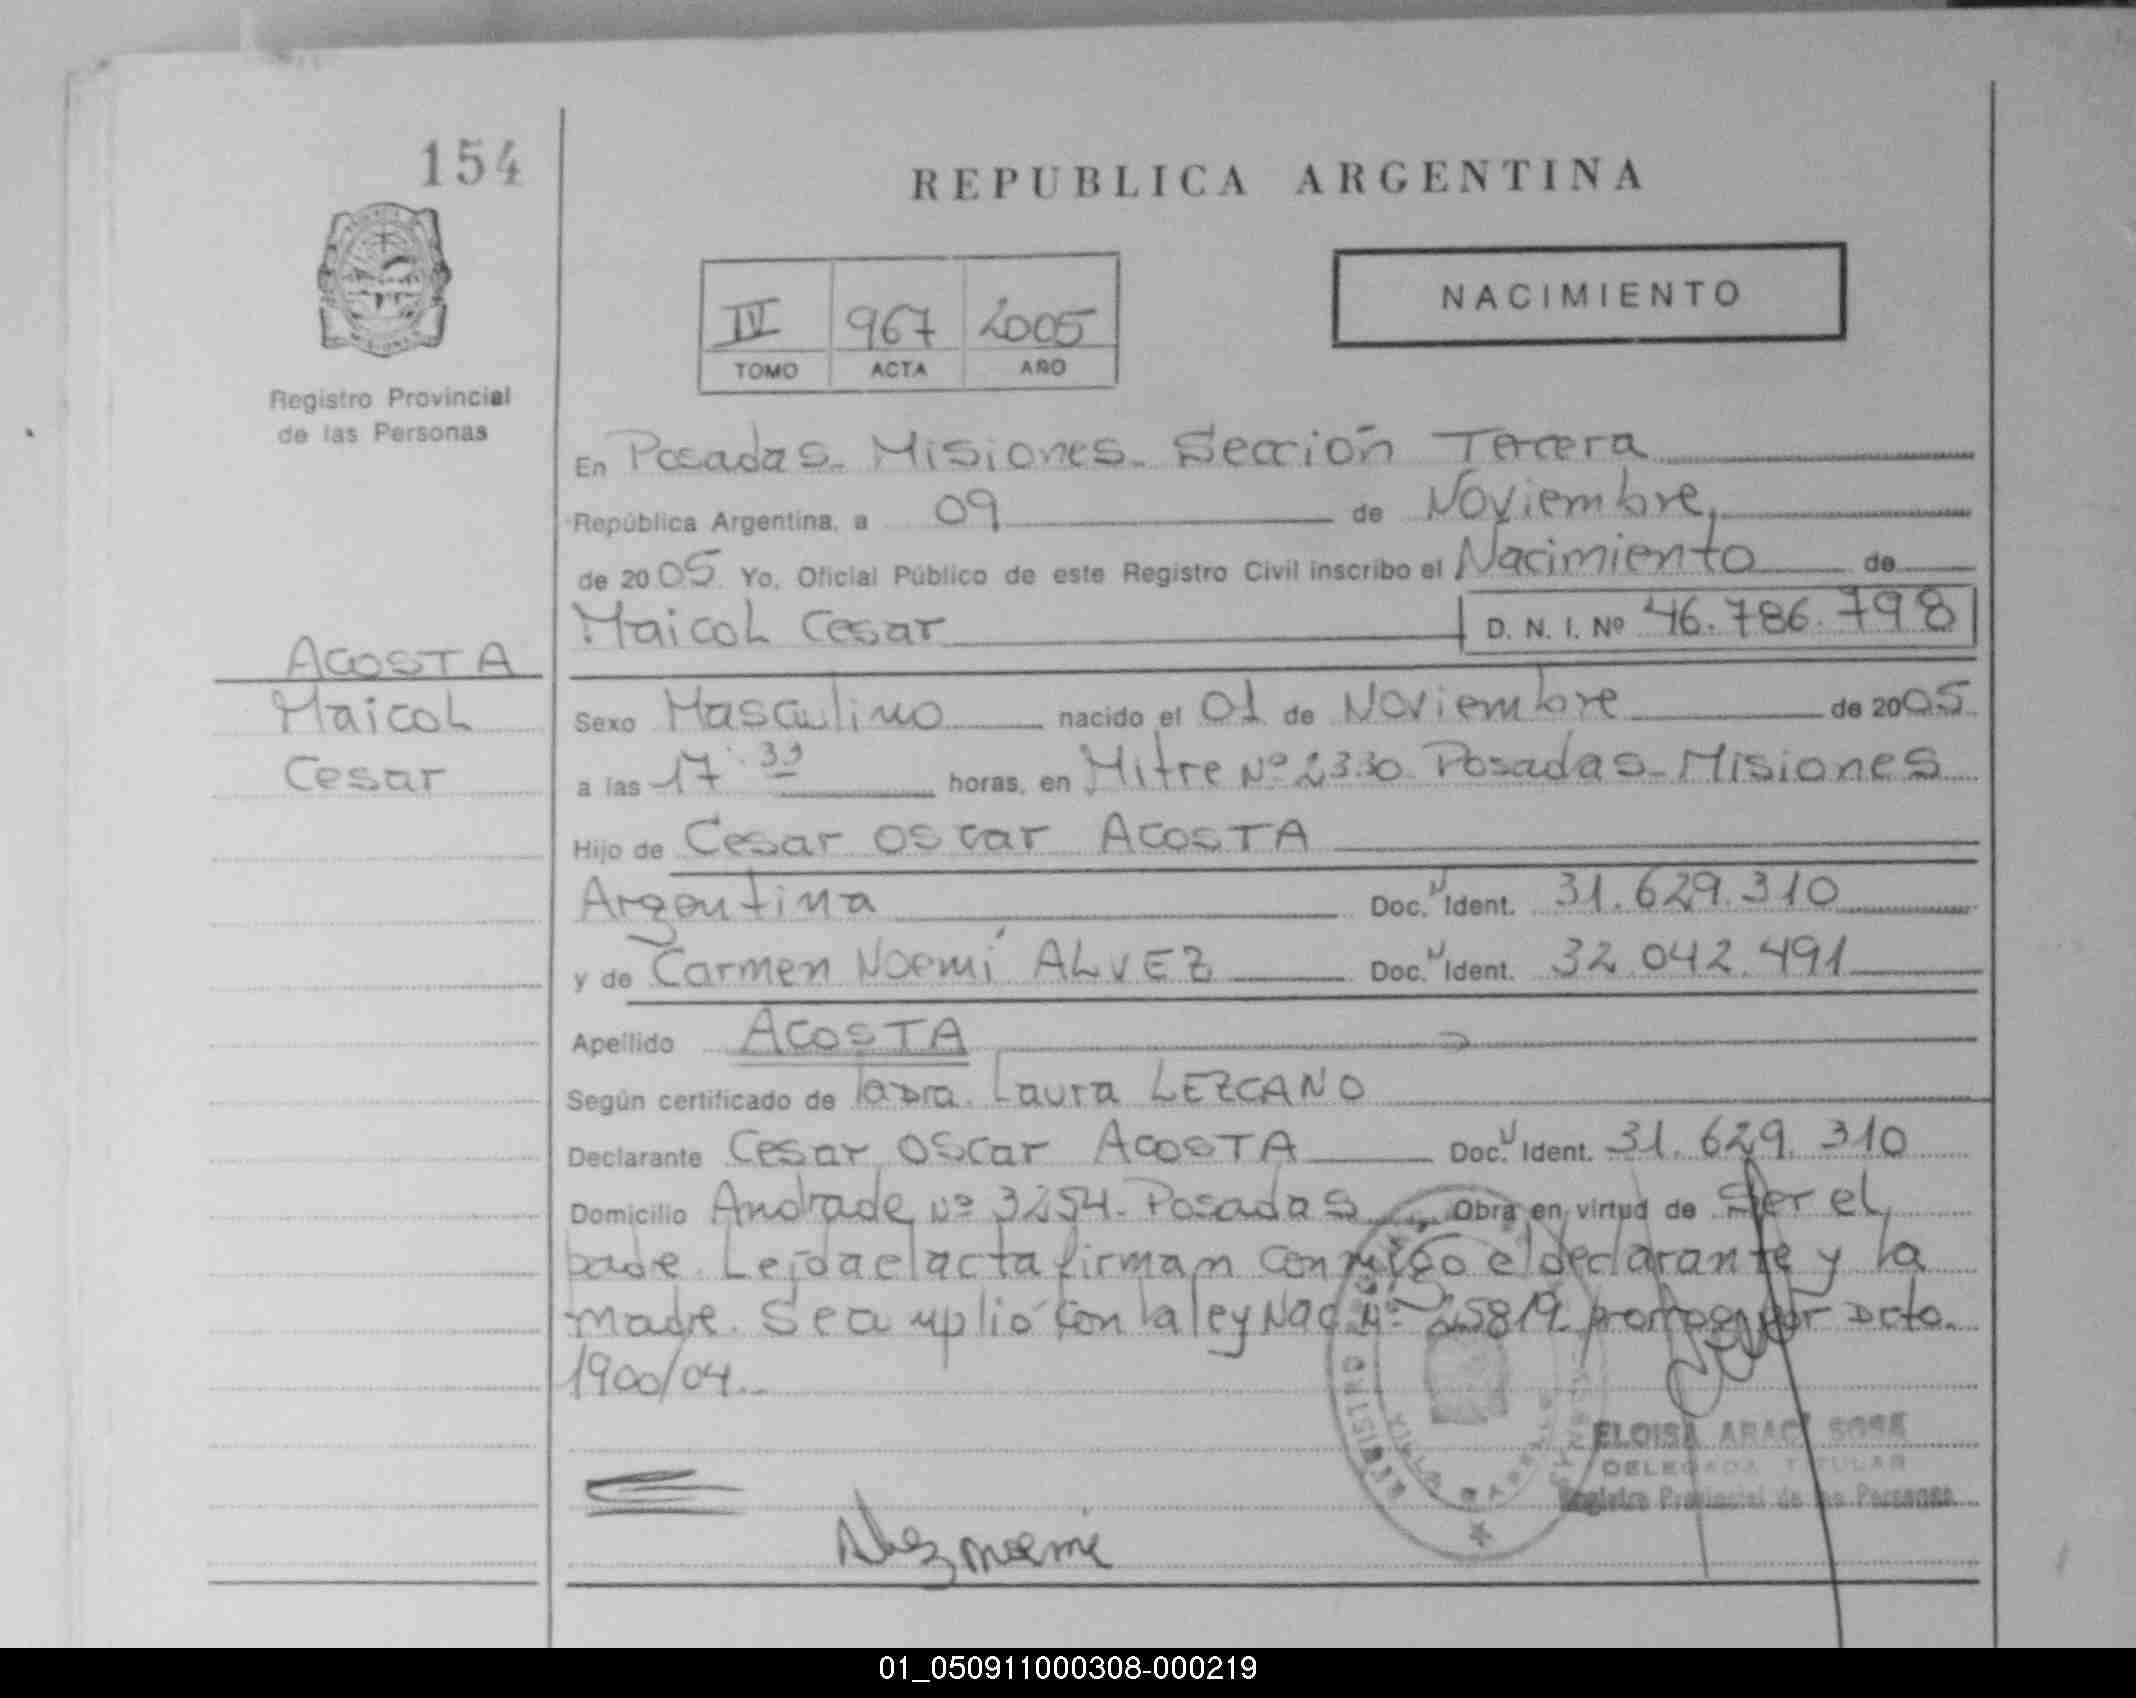 154
REPUBLICA ARGENTINA
NACIMIENTO
IV 967 2005
TOMO ACTA AÑO
Registro Provincial
de las Personas
En Posadas - Misiones - Sección Tercera
República Argentina, a 09 de Noviembre,
de 2005 Yo, Oficial Público de este Registro Civil inscribo el Nacimiento de
Maicol Cesar D. N. I. Nº 46.786.798
ACOSTA
Maicol
Cesar
Sexo Masculino nacido el 01 de Noviembre de 2005
a las 17 horas, en Mitre Nº 2330 Posadas - Misiones
Hijo de Cesar Oscar ACOSTA
Argentina Doc. Ident. 31.629.310
y de Carmen Noemí ALVEZ Doc. Ident. 32.042.491
Apellido ACOSTA
Según certificado de la Dra. Laura LEZCANO
Declarante Cesar Oscar ACOSTA Doc. Ident. 31.629.310
Domicilio Andrade Nº 3254 - Posadas Obra en virtud de Ser el
padre. Leída el acta firman conmigo el declarante y la
madre. Se cumplió con la ley Nac. Nº 25819 por Dcto.
1900/04.
ELOISA ARACÍ SOSA
DELEGADA TITULAR
Registro Provincial de las Personas
Alvez noemi
01_050911000308-000219